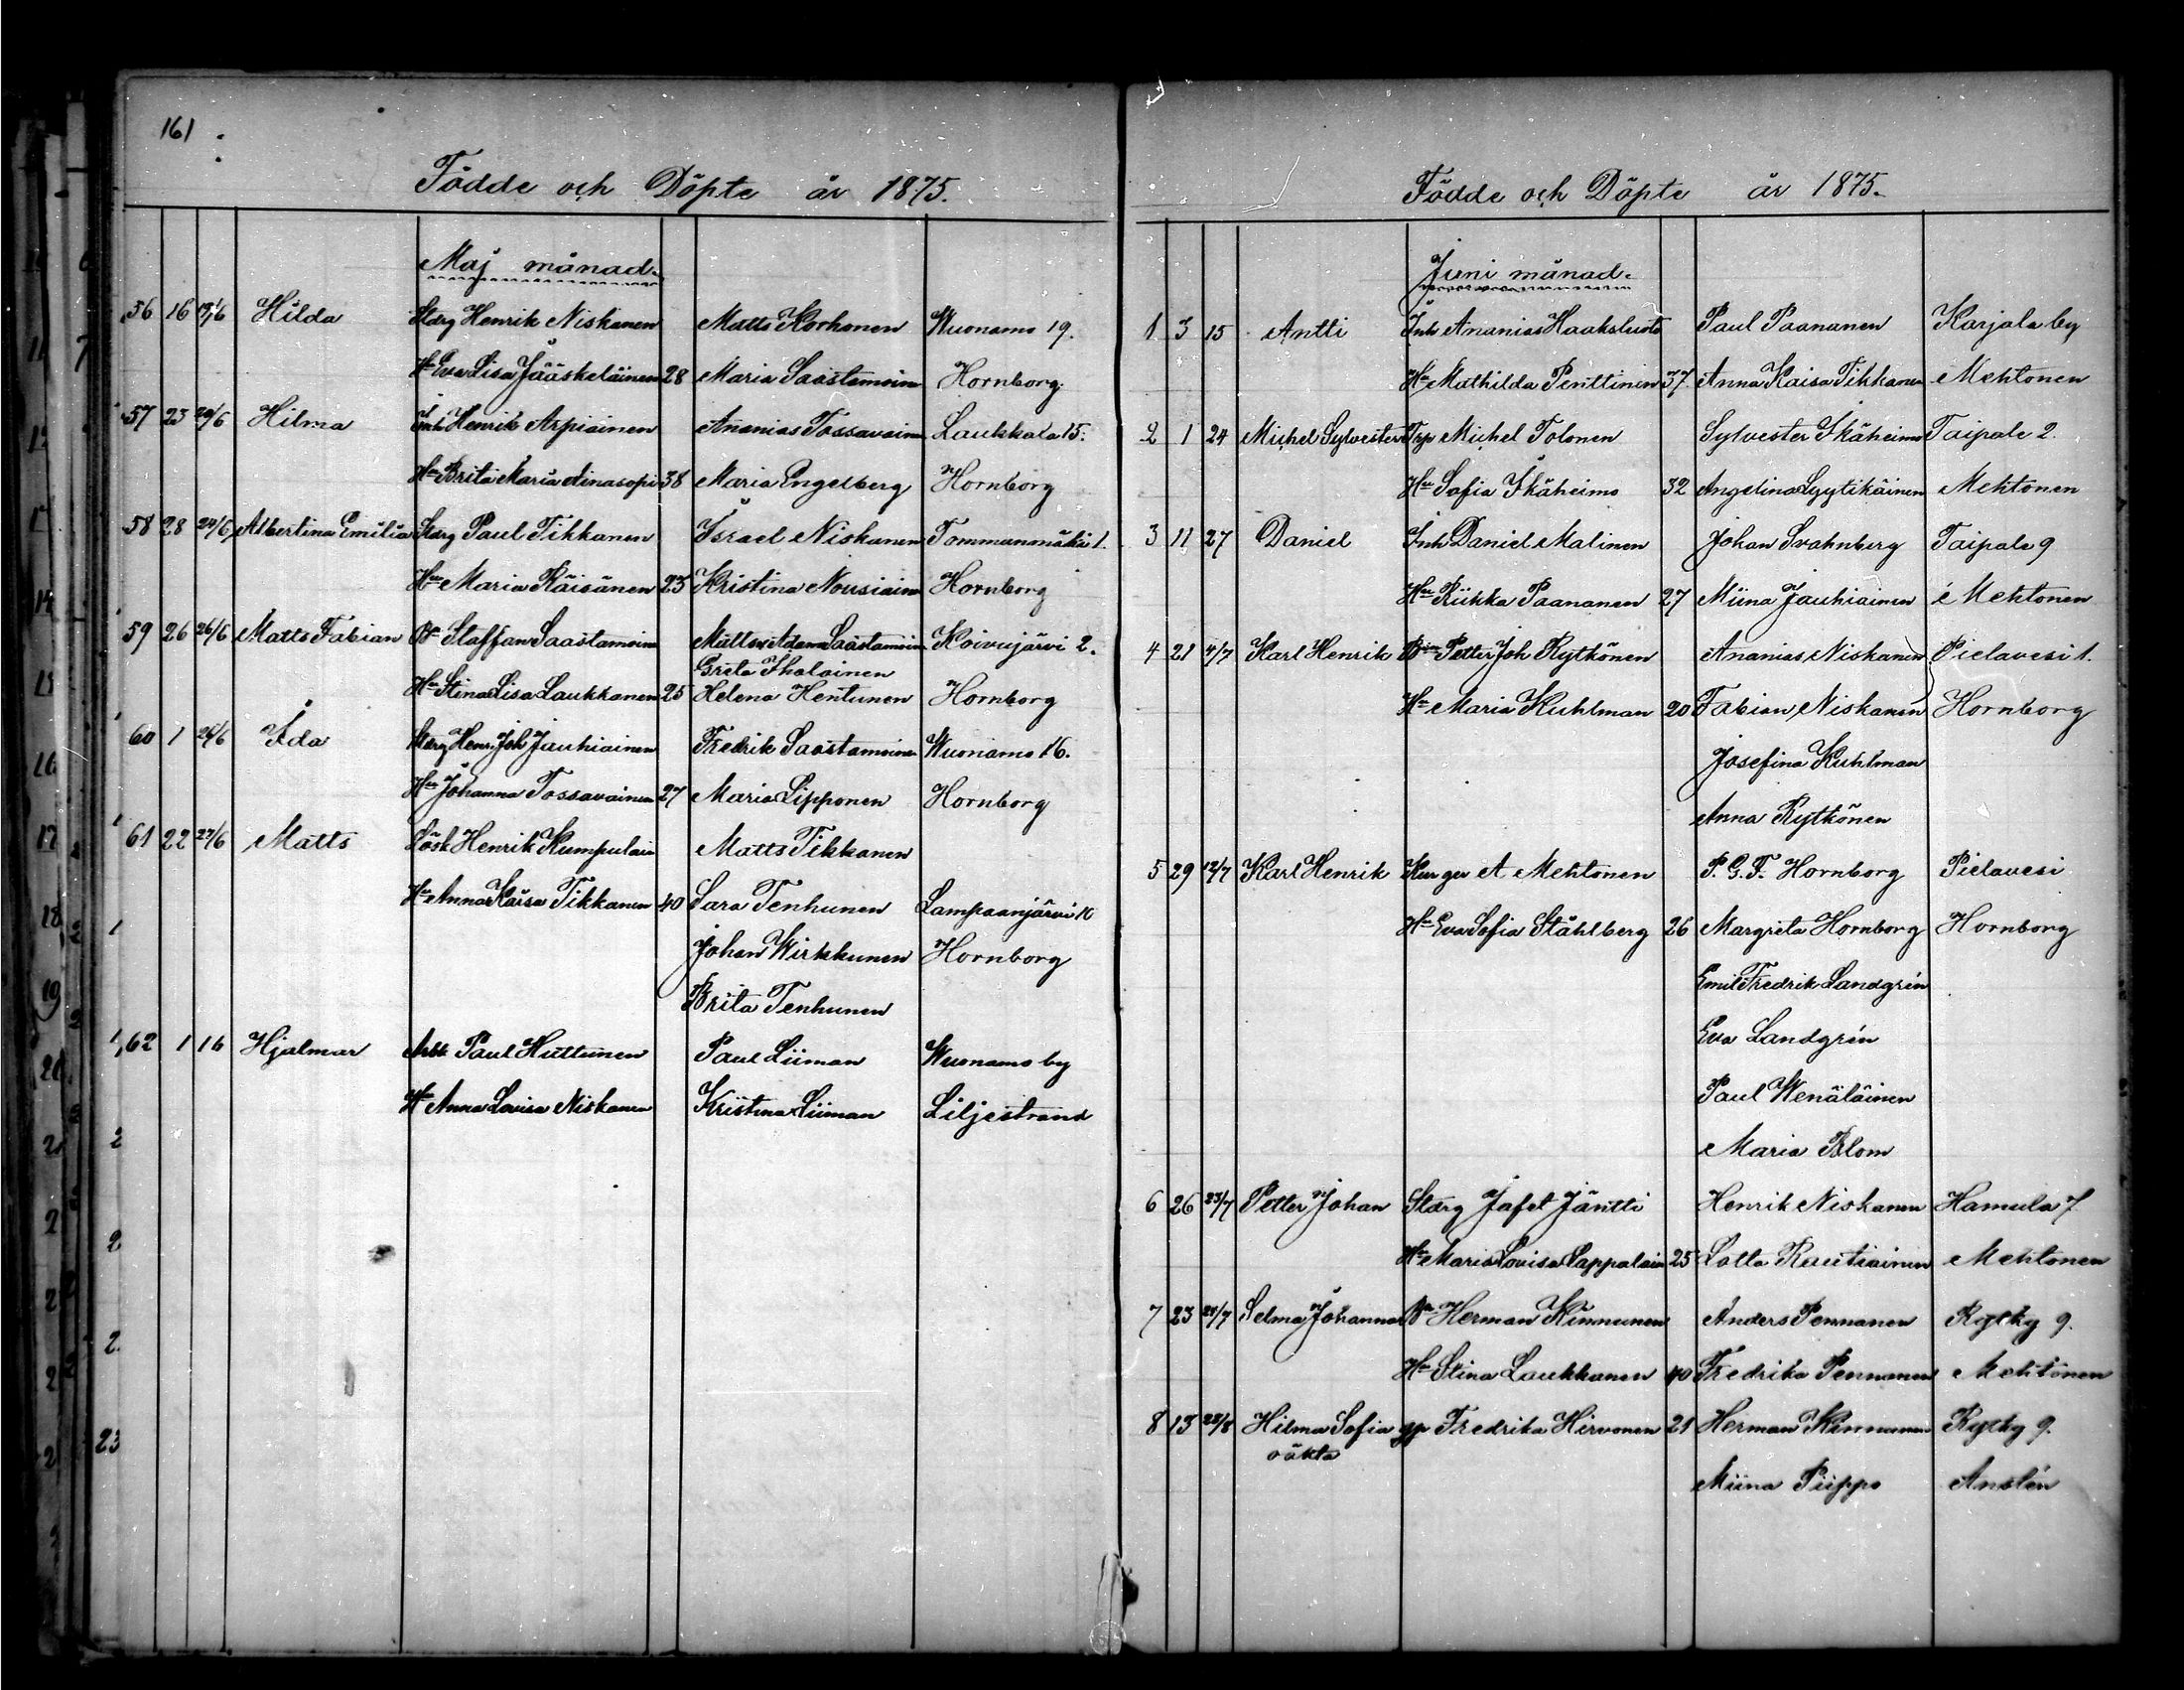 161
Födde och Döpte år 1875.
Maj månad.
56 16 19/6 Hilda Stdrg Henrik Niskanen Matts Korhonen Wuonamo 19.
Hu Eva Lisa Jääskeläinen 28 Maria Saastamoin Hornborg
57 23 20/6 Hilma Inh Henrik Arpiainen Ananias Tossavain Laukkala 15.
Hu Brita Maria Ainasopi 38 Maria Engelberg Hornborg
58 28 24/6 Albertina Emilia Stdrg Paul Tikkanen Israel Niskanen Tommanmäki 1.
Hu Maria Räisänen 23 Kristina Nousiain Hornborg
59 26 26/6 Matts Fabian Bn Staffan Saastamoin Matts o Adam Saastamoin Koivujärvi 2.
Greta Ikalainen
Hu Stina Lisa Laukkanen 25 Helena Hentunen Hornborg
60 1 26/6 Ida Stdrg Henr. Joh Jauhiainen Fredrik Saastamoinen Wuonamo 16.
Hu Johanna Tossavainen 27 Maria Lipponen Hornborg
61 22 27/6 Matts Lösk Henrik Kumpulain Matts Tikkanen
Hu Anna Kaisa Tikkanen 40 Sara Tenhunen Lampaanjärvi 10
Johan Wirkkunen Hornborg
Brita Tenhunen
62 1 16 Hjalmar Arbk Paul Huttunen Paul Liiman Wuonamo by
Hu Anna Lovisa Niskanen Kristina Liiman Liljestrand
Födde och Döpte år 1875.
Juni månad.
1 3 15 Antti Inh Ananias Haaksluoto Paul Paananen Karjala by
Hu Mathilda Penttinen 37 Anna Kaisa Tikkanen Mehtonen
2 1 24 Michel Sylvester Trp Michel Tolonen Sylvester Ikäheimo Taipale 2.
Hu Sofia Ikäheimo 32 Angelina Lyytikäinen Mehtonen
3 11 27 Daniel Inh Daniel Malinen Johan Svahnberg Taipale 9
Hu Riikka Paananen 27 Miina Jauhiainen Mehtonen
4 21 4/7 Karl Henrik Bn Petter Joh Rytkönen Ananias Niskanen Pielavesi 1.
Hu Maria Kuhlman 20 Fabian Niskanen Hornborg
Josefina Kuhlman
Anna Rytkönen
5 29 12/7 Karl Henrik A Mehtonen P. G. F. Hornborg Pielavesi
Hu Eva Sofia Ståhlberg 26 Margreta Hornborg Hornborg
Emil Fredrik Landgrén
Eva Landgrén
Paul Wenäläinen
Maria Blom
6 26 23/7 Petter Johan Stdrg Jafet Jäntti Henrik Niskanen Hamula 7
Hu Maria Lovisa Lappalain 25 Lotta Rautiainen Mehtonen
7 23 25/7 Selma Johanna Bn Herman Kinnunen Anders Pennanen Rytky 9.
Hu Stina Laukkanen 40 Fredrika Pennanen Mehtonen
8 13 22/8 Hilma Sofia gp Fredrika Hirvonen 21 Herman Kinnunen Rytky 9.
oäkta
Miina Piippo Anslén